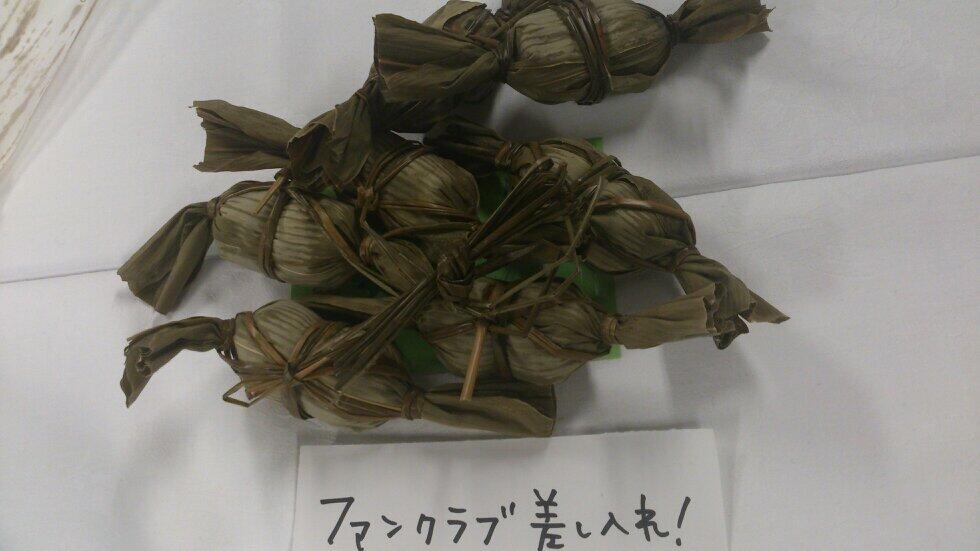 ファンクラブ差し入れ!